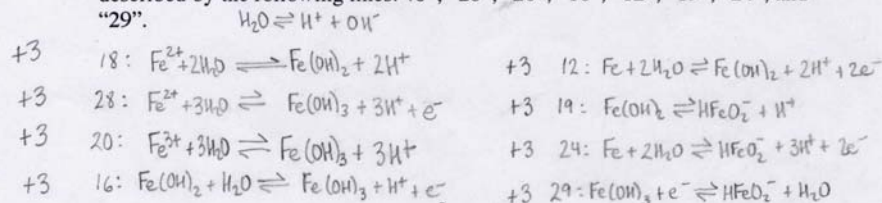 "29". H₂O ⇌ H⁺ + OH⁻
+3 18: Fe²⁺+2H₂O ⇌ Fe(OH)₂ + 2H⁺
+3 28: Fe²⁺ +3H₂O ⇌ Fe(OH)₃ + 3H⁺ + e⁻
+3 20: Fe³⁺ +3H₂O ⇌ Fe(OH)₃ + 3H⁺
+3 16: Fe(OH)₂ + H₂O ⇌ Fe(OH)₃ + H⁺ + e⁻
+3 12: Fe+2H₂O ⇌ Fe(OH)₂ + 2H⁺ + 2e⁻
+3 19: Fe(OH)₂ ⇌ HFeO₂⁻ + H⁺
+3 24: Fe+2H₂O ⇌ HFeO₂⁻ + 3H⁺ + 2e⁻
+3 29: Fe(OH)₃ + e⁻ ⇌ HFeO₂⁻ + H₂O